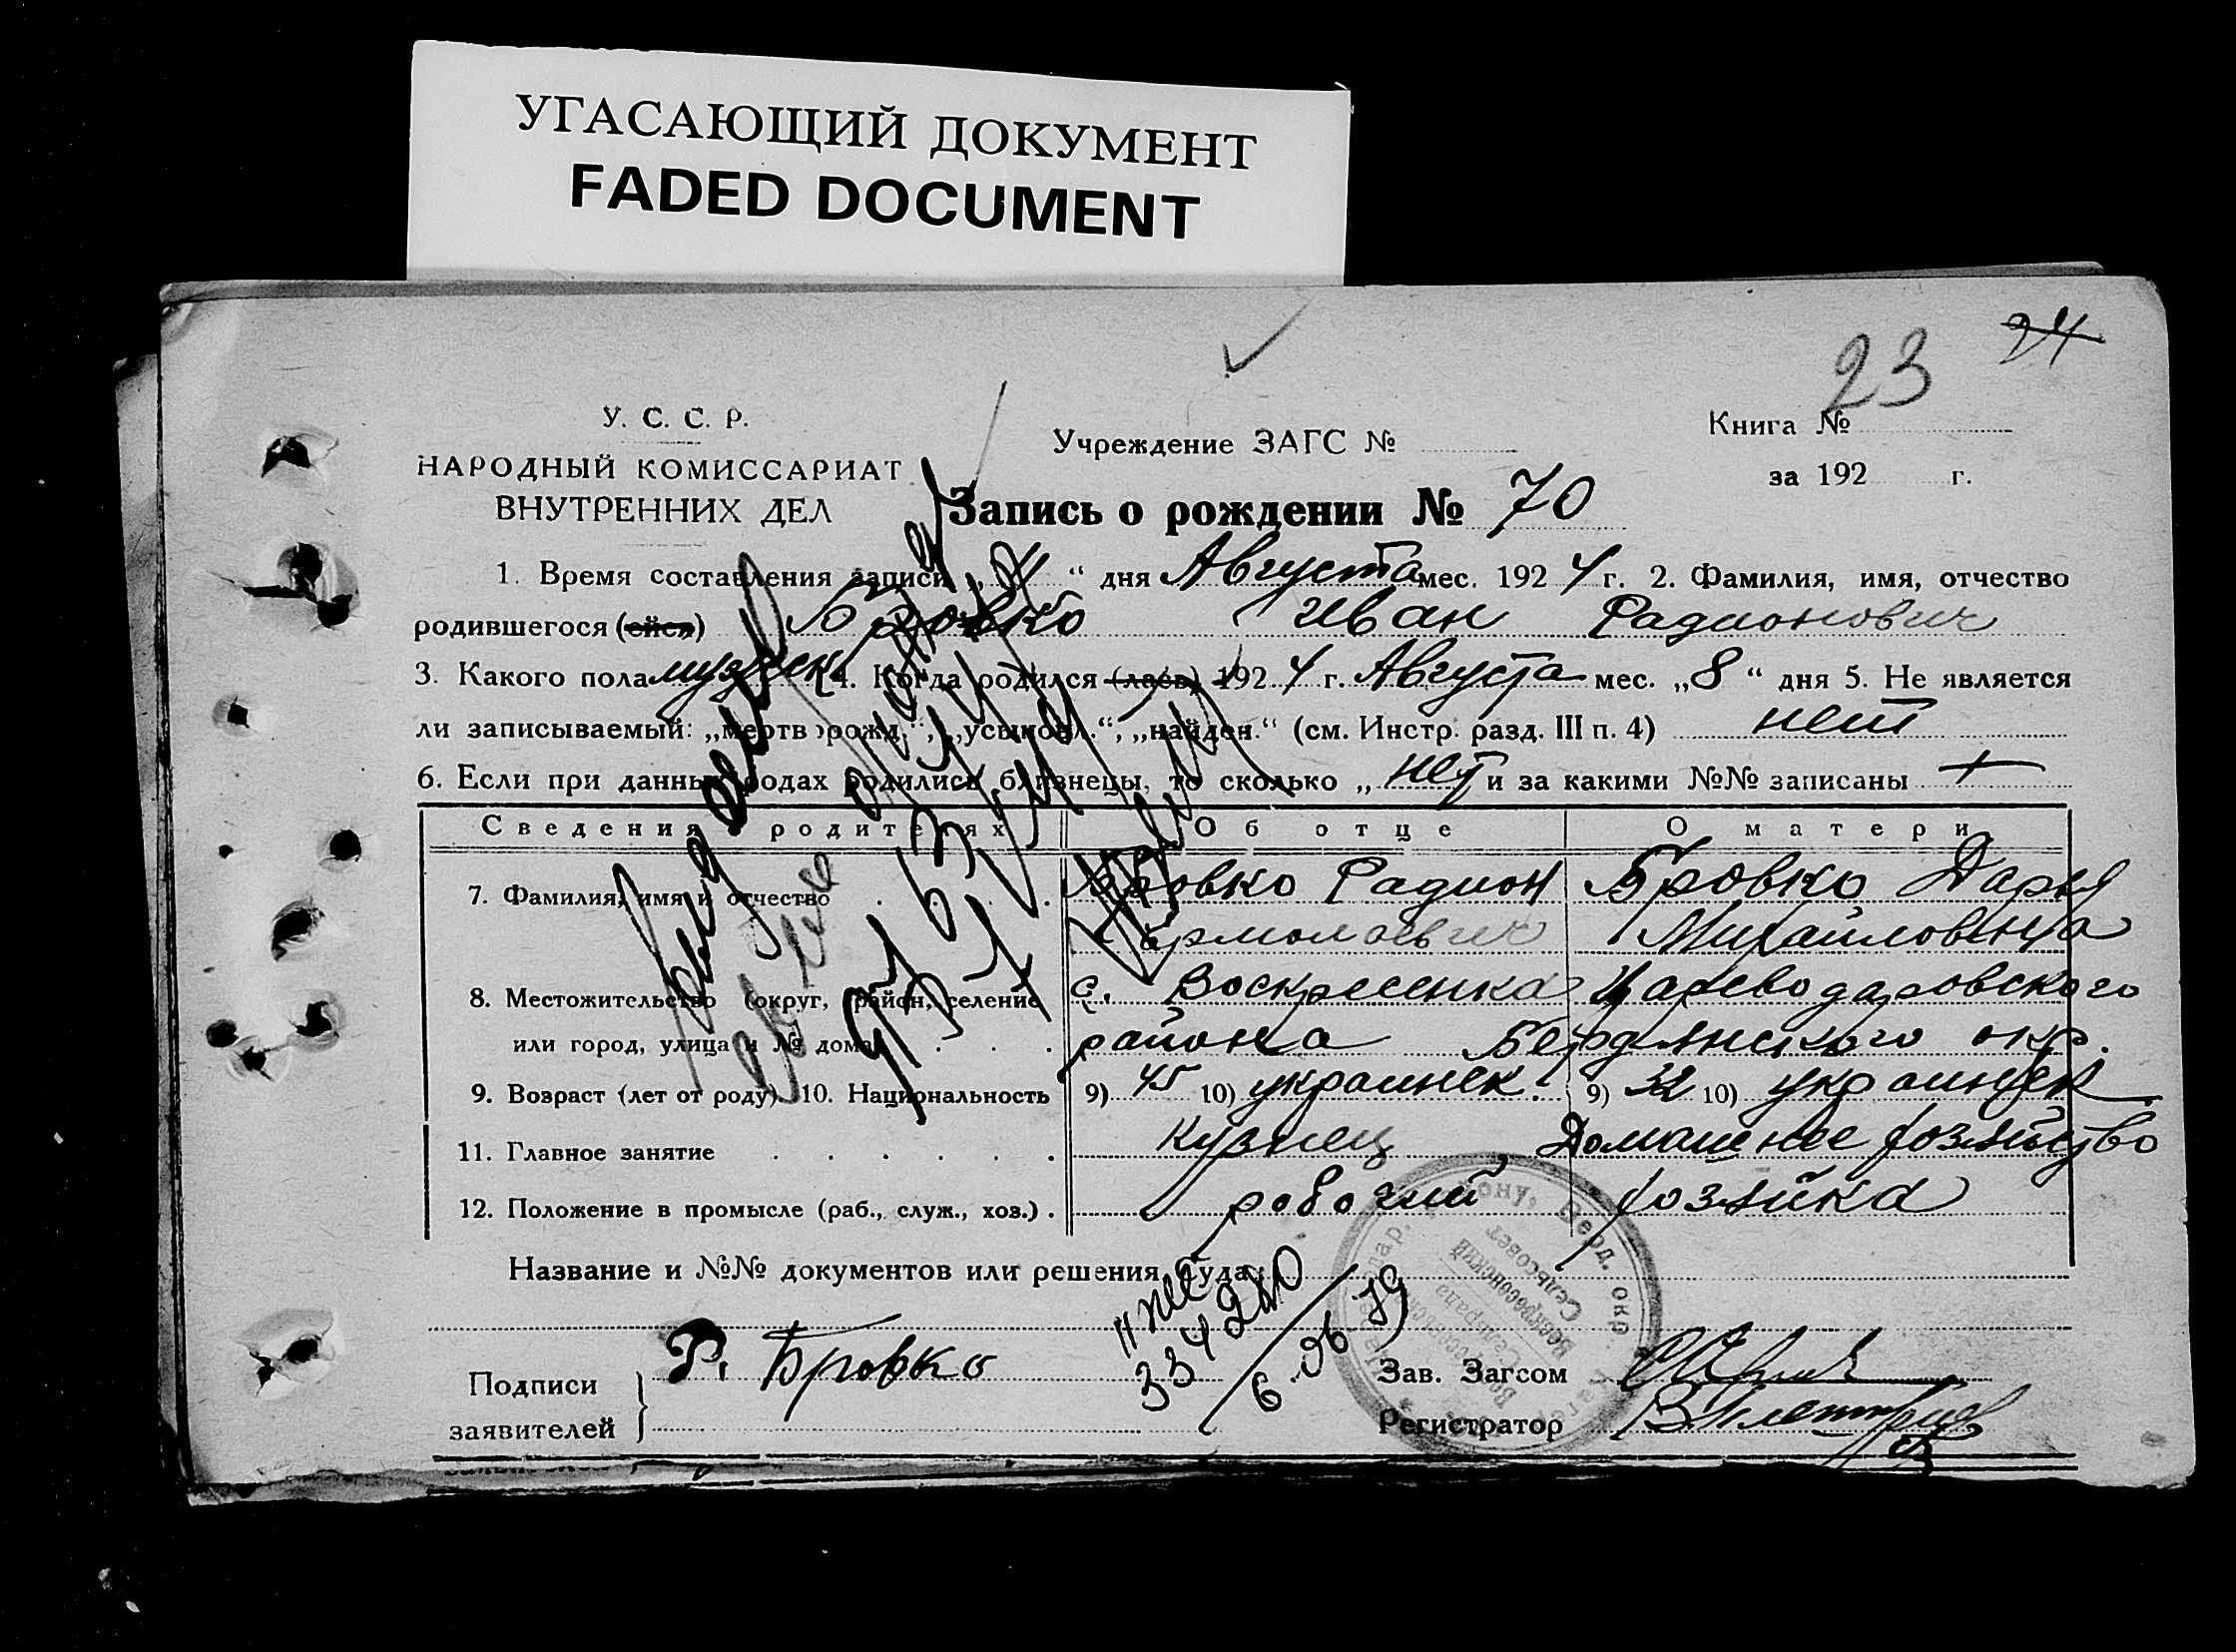 УГАСАЮЩИЙ ДОКУМЕНТ
FADED DOCUMENT
24
23
У. С. С. Р.
НАРОДНЫЙ КОМИССАРИАТ
ВНУТРЕННИХ ДЕЛ
Учреждение ЗАГС №
Книга №
за 192 г.
Запись о рождении № 70
1. Время составления записи „ “ дня Августа мес. 192 4 г. 2. Фамилия, имя, отчество
родившегося (ейся) Бровко Иван Радионович
3. Какого пола мужск 4. Когда родился (лась) 192 4 г. Августа мес. „8“ дня 5. Не является
ли записываемый: „мертворожд.“, „усыновл.“, „найден.“ (см. Инстр. разд. III п. 4) нет
6. Если при данных родах родились близнецы, то сколько „ нет и за какими №№ записаны
Сведения о родителях Об отце О матери
7. Фамилия, имя и отчество Бровко Радион Бровко Дарья
Ермолаевич Михайловена
8. Местожительство (округ, район, селение с. Воскресенка Цареводаровского
или город, улица и № дома) района Бердянского окр.
9. Возраст (лет от роду) 10. Национальность 9) 45 10) украинек. 9) 32 10) украинек
11. Главное занятие Кузнец Домашнее хозяйство
12. Положение в промысле (раб., служ., хоз.) робочий хозяйка
Название и №№ документов или решения суда:
334220
6 06 79
Воскресенский
Сельсовет
Подписи
заявителей
Р. Бровко
Зав. Загсом
Регистратор